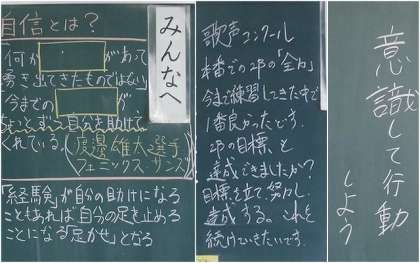 自信とは?
みんなへ
何か　　　があって
湧き出てきたものではない
今までの　　　が
ちょっとずつ自分を助けて
くれている。
(渡邊雄太選手
フェニックスサンズ)
「経験」が自分の助けになる
こともあれば自分の足を止める
ことになる「足かせ」となる
歌声コンクール
本番での2の「全力」
今まで練習してきた中で
1番良かったです。
2の目標と
達成できましたか?
目標を立て、努力し
達成する。これを
続けていきたいです。
意識して行動
しよう